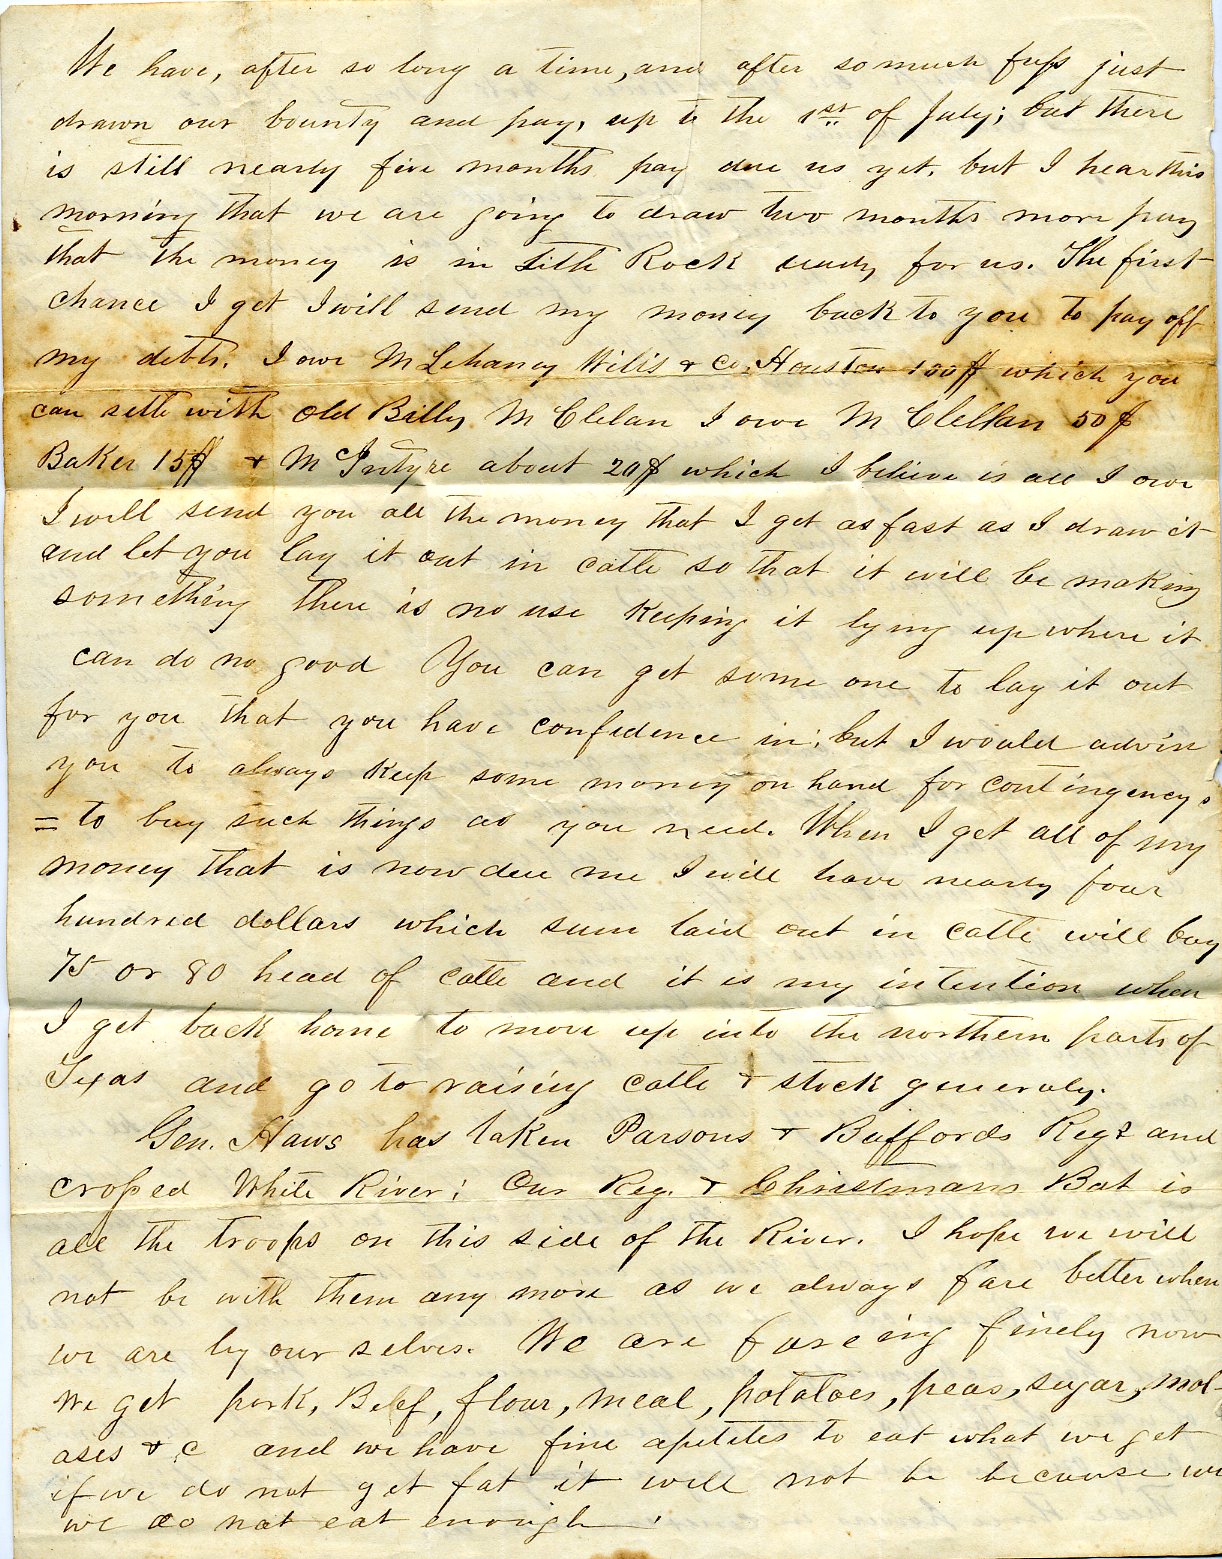 We have, after so long a time, and after so much fuss just
drawn our bounty and pay, up to the 1st of July; but there
is still nearly five months pay due us yet, but I hear this
morning that we are going to draw two months more pay
that the money is in Little Rock ready for us. The first
chance I get I will send my money back to you to pay off
my debts. I owe McLehany Wilis & Co. Houston 100$ which you
can settle with old Billy McClelan I owe McClellan 50$
Baker 15$ & McIntyre about 20$ which I believe is all I owe
I will send you all the money that I get as fast as I draw it
and let you lay it out in cattle so that it will be making
something there is no use keeping it lying up where it
can do no good You can get some one to lay it out
for you that you have confidence in; but I would advise
you to always keep some money on hand for contingencys
= to buy such things as you need. When I get all of my
money that is now due me I will have nearly four
hundred dollars which sum laid out in cattle will buy
75 or 80 head of cattle and it is my intention when
I get back home to move up into the northern parts of
Texas and go to raising cattle & stock generaly.
Gen. Haws has taken Parsons & Buffords Regt and
croped White River; Our Reg. & Christmans Bat is
all the troops on this side of the River. I hope we will
not be with them any more as we always fare better when
we are by our selves. We are fareing finely now
We get pork, Beef, flour, meal, potatoes, peas, sugar, mol-
ases & c and we have fine apetites to eat what we get
if we do not get fat it will not be because we
we do not eat enough.